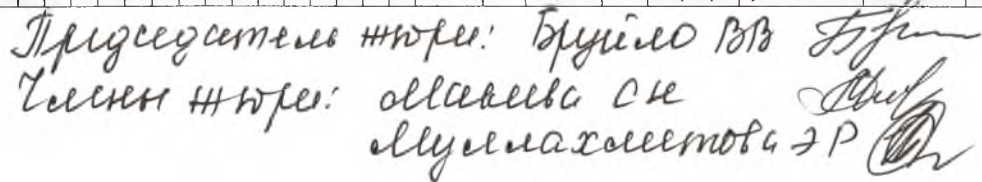 Председатель жюри: Бруйло ВВ
Члены жюри: Малеева СН
Муллахметова ЭР